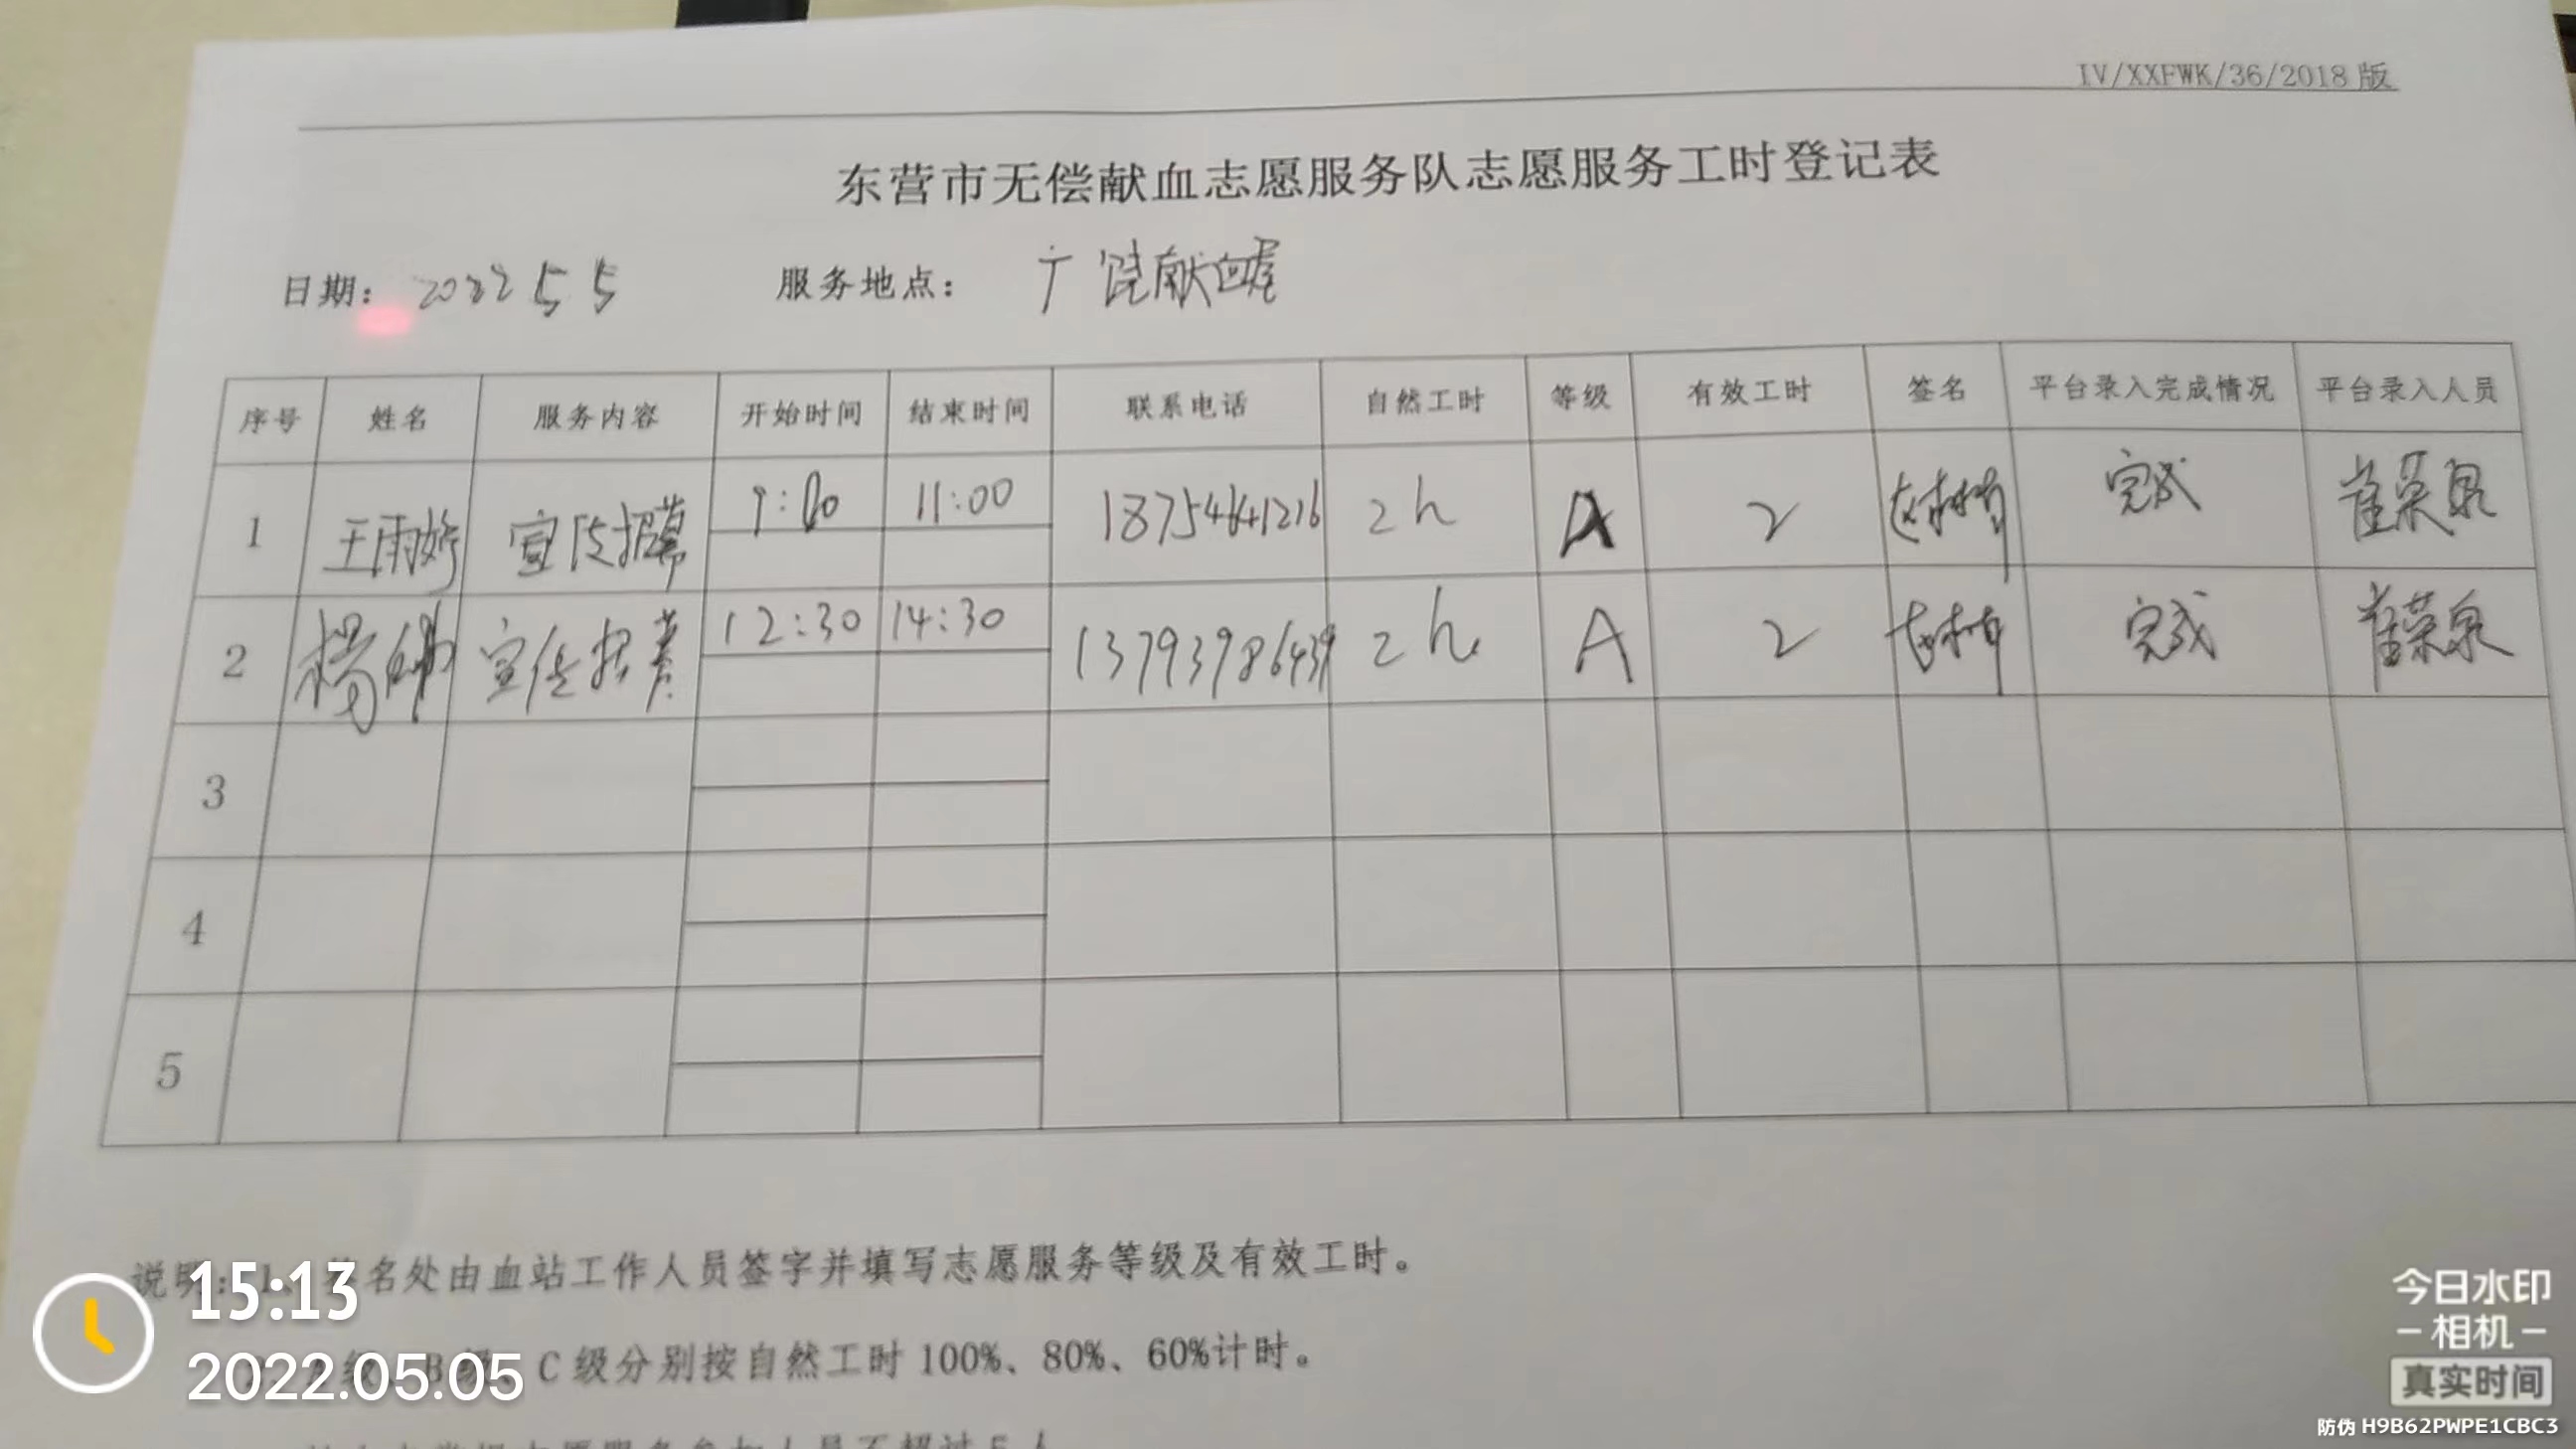 IV/XXFWK/36/2018 版
东营市无偿献血志愿服务队志愿服务工时登记表
日期： 2022 5 5 服务地点： 广饶献血屋
序号 姓名 服务内容 开始时间 结束时间 联系电话 自然工时 等级 有效工时 签名 平台录入完成情况 平台录入人员
1 王雨婷 宣传招募 9:00 11:00 18754641216 2h A 2 完成 崔荣泉
2 杨 宣传招募 12:30 14:30 13793986439 2h A 2 完成 崔荣泉
3
4
5
说明：1、签名处由血站工作人员签字并填写志愿服务等级及有效工时。
级 B级、C级分别按自然工时 100%、80%、60%计时。
15:13
2022.05.05
今日水印
相机
真实时间
防伪 H9B62PWPE1CBC3